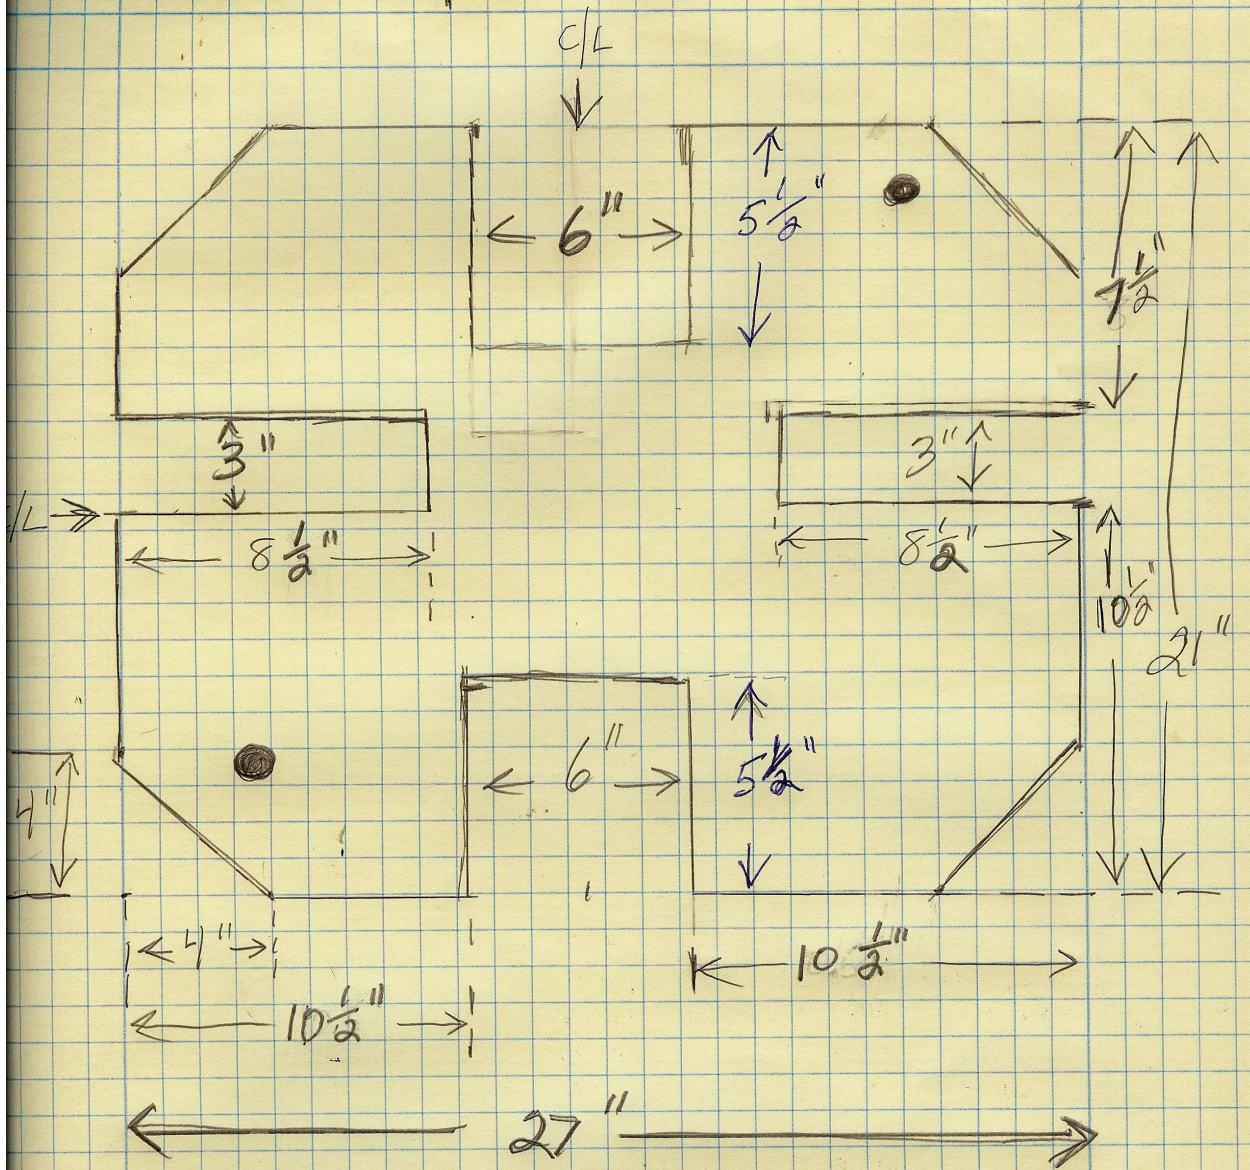 C/L
6" 5 1/2"
7 1/2"
3" 3"
/L
8 1/2" 8 1/2"
10 1/2"
21"
6" 5 1/2"
4"
4" 10 1/2"
10 1/2"
27"